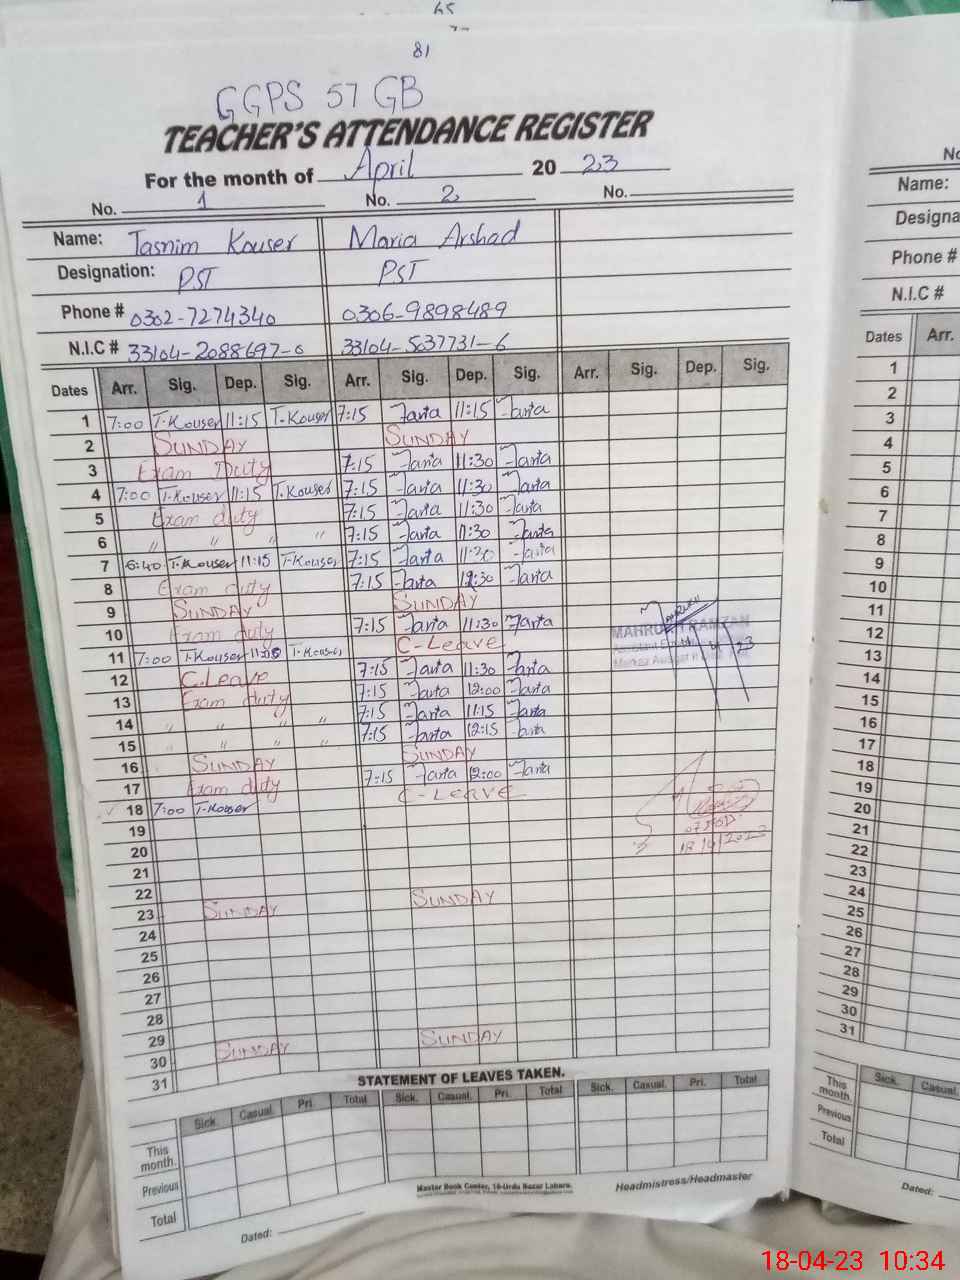 81
GGPS 57 GB
TEACHER'S ATTENDANCE REGISTER
For the month of April 20 23
No. 1 No. 2 No.
Name: Tasnim Kouser Maria Arshad
Designation: PST PST
Phone # 0302-7274340 0306-9898489
N.I.C # 33104-2088697-0 33104-5037731-6
Dates Arr. Sig. Dep. Sig. Arr. Sig. Dep. Sig. Arr. Sig. Dep. Sig.
1 7:00 T-Kouser 11:15 T.Kouser 7:15 11:15
2 SUNDAY SUNDAY
3 Exam Duty 7:15 11:30
4 7:00 T-Kouser 11:15 T.Kouser 7:15 11:30
5 Exam duty 7:15 11:30
6 " " " " 7:15 11:30
7 6:40 T-Kouser 11:15 T-Kouser 7:15 11:30
8 Exam duty 7:15 12:30
9 SUNDAY SUNDAY
10 Exam duty 7:15 11:30
11 7:00 T-Kouser T-Kouser C-Leave
12 C.Leave 7:15 11:30
13 Exam duty 7:15 12:00
14 " " " " 7:15 11:15
15 " " " " 7:15 12:15
16 SUNDAY SUNDAY
17 Exam duty 7:15 12:00
18 7:00 T-Kouser C-LEAVE
19
20
21
22
23 SUNDAY SUNDAY
24
25
26
27
28
29
30 SUNDAY SUNDAY
31
18/4/2023
STATEMENT OF LEAVES TAKEN.
Sick. Casual. Pri. Total Sick. Casual. Pri. Total Sick. Casual. Pri. Total
This month.
Previous
Total
Master Book Center, 16-Urdu Bazar Lahore.
Headmistress/Headmaster
Dated:
No
Name:
Designa
Phone #
N.I.C #
Dates Arr.
1
2
3
4
5
6
7
8
9
10
11
12
13
14
15
16
17
18
19
20
21
22
23
24
25
26
27
28
29
30
31
Sick. Casual.
This month.
Previous
Total
Dated:
18-04-23 10:34